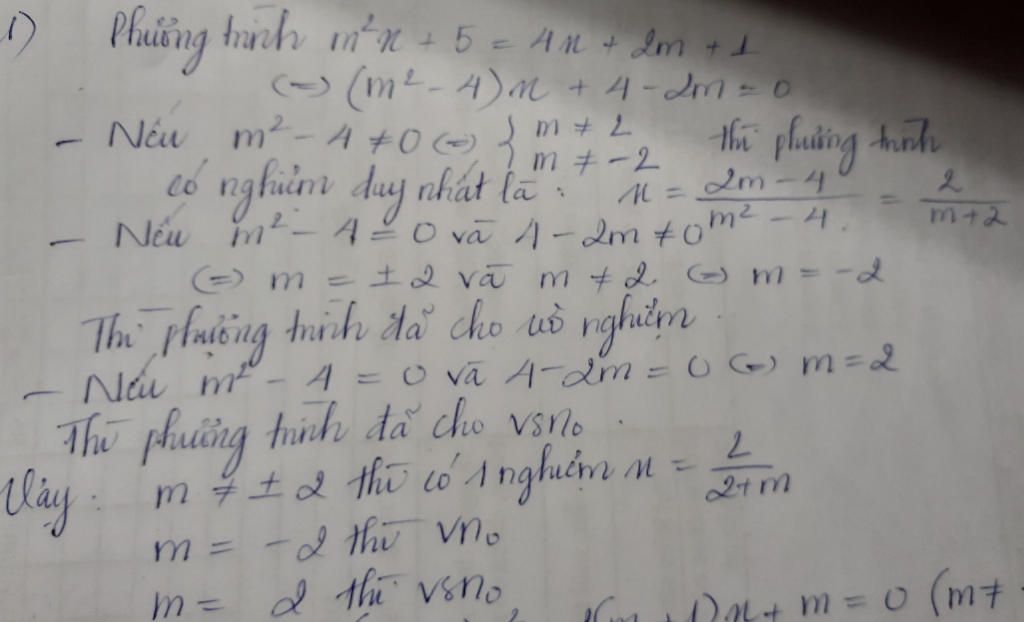 1) Phương trình m²x + 5 = 4x + 2m + 1
(=) (m² - 4)x + 4 - 2m = 0
- Nếu m² - 4 ≠ 0 (=) { m ≠ 2 m ≠ -2 thì phương trình
có nghiệm duy nhất là : x = (2m - 4)/(m² - 4) = 2/(m+2)
- Nếu m² - 4 = 0 và 4 - 2m ≠ 0
(=) m = ± 2 và m ≠ 2. (=) m = -2
Thì phương trình đã cho vô nghiệm.
- Nếu m² - 4 = 0 và 4 - 2m = 0 (=) m = 2
Thì phương trình đã cho vsn₀.
Vậy. m ≠ ± 2 thì có 1 nghiệm x = 2/(2+m)
m = -2 thì vn₀
m = 2 thì vsn₀
x + m = 0 (m ≠